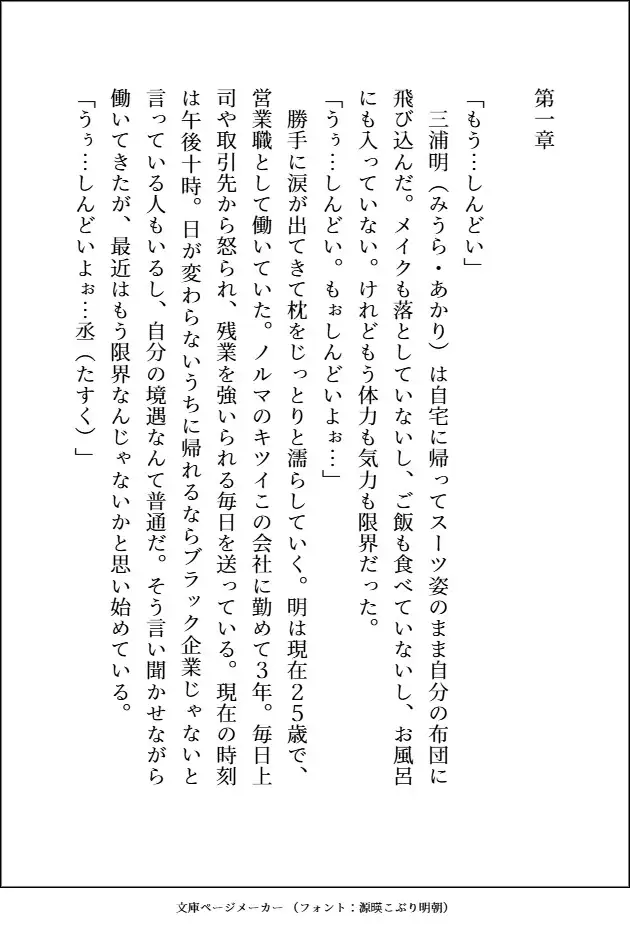 第一章
「もう…しんどい」
　三浦明（みうら・あかり）は自宅に帰ってスーツ姿のまま自分の布団に
飛び込んだ。メイクも落としていないし、ご飯も食べていないし、お風呂
にも入っていない。けれどもう体力も気力も限界だった。
「うぅ…しんどい。もぉしんどいよぉ…」
　勝手に涙が出てきて枕をじっとりと濡らしていく。明は現在２５歳で、
営業職として働いていた。ノルマのキツイこの会社に勤めて３年。毎日上
司や取引先から怒られ、残業を強いられる毎日を送っている。現在の時刻
は午後十時。日が変わらないうちに帰れるならブラック企業じゃないと
言っている人もいるし、自分の境遇なんて普通だ。そう言い聞かせながら
働いてきたが、最近はもう限界なんじゃないかと思い始めている。
「うぅ…しんどいよぉ…丞（たすく）」
文庫ページメーカー （フォント：源暎こぶり明朝）